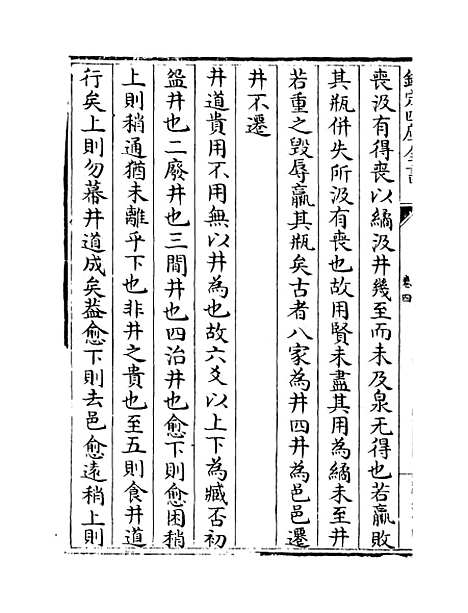 欽定四庫全書
卷四
喪汲有得喪以繘汲井幾至而未及泉无得也若羸敗
其瓶併失所汲有喪也故用賢未盡其用為繘未至井
若重之毀辱羸其瓶矣古者八家為井四井為邑邑遷
井不遷
井道貴用不用無以井為也故六爻以上下為臧否初
智井也二廢井也三間井也四治井也愈下則愈困稍
上則稍通猶未離乎下也非井之貴也至五則食井道
行矣上則勿幕井道成矣葢愈下則去邑愈遠稍上則